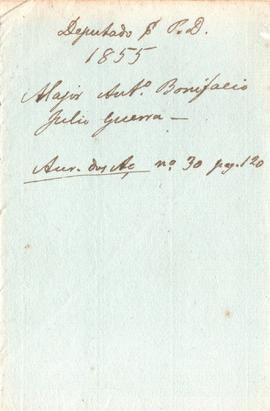 Deputado p P. D.
1855
Major Antº. Bonifacio
Julio Guerra —
Aur. dos Aç nº. 30 pag. 120